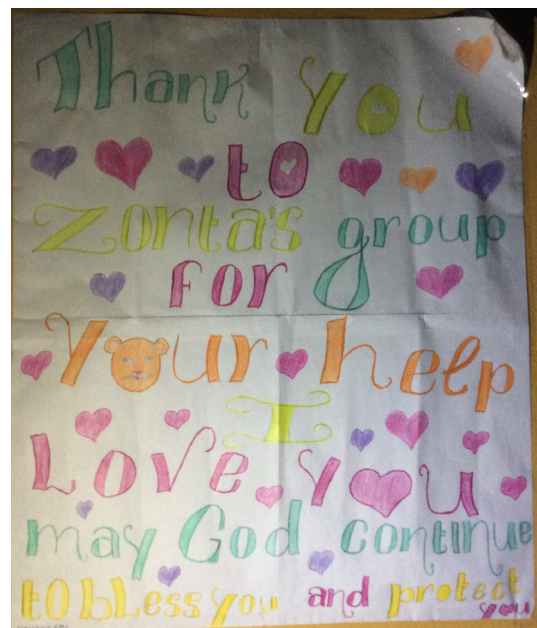 Thank you
to
Zonta's group
for
Your help
I
Love you
may God continue
to bless you and protect
you